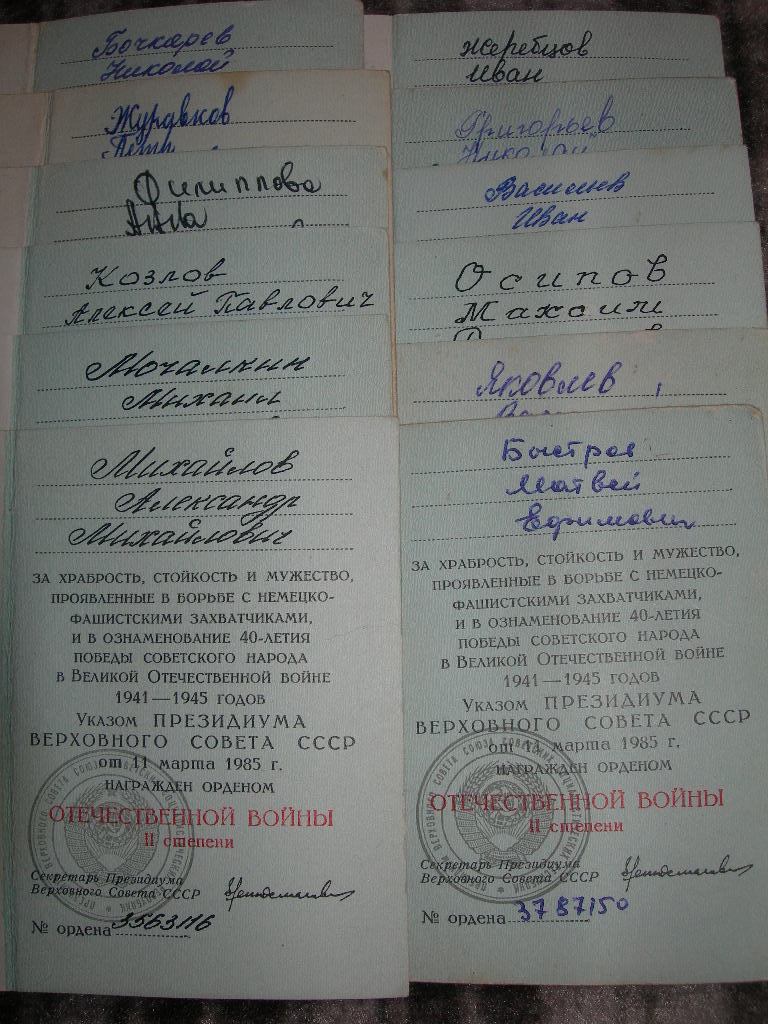 Бочкарев
Николай
Журавков
Филиппова
Анна
Козлов
Алексей Павлович
Мочалкин
Михаил
Михайлов
Александр
Михайлович
ЗА ХРАБРОСТЬ, СТОЙКОСТЬ И МУЖЕСТВО,
ПРОЯВЛЕННЫЕ В БОРЬБЕ С НЕМЕЦКО-
ФАШИСТСКИМИ ЗАХВАТЧИКАМИ,
И В ОЗНАМЕНОВАНИЕ 40-ЛЕТИЯ
ПОБЕДЫ СОВЕТСКОГО НАРОДА
В ВЕЛИКОЙ ОТЕЧЕСТВЕННОЙ ВОЙНЕ
1941—1945 ГОДОВ
УКАЗОМ ПРЕЗИДИУМА
ВЕРХОВНОГО СОВЕТА СССР
от 11 марта 1985 г.
НАГРАЖДЕН ОРДЕНОМ
ОТЕЧЕСТВЕННОЙ ВОЙНЫ
II степени
Секретарь Президиума
Верховного Совета СССР
№ ордена 3563116
Жеребцов
Иван
Григорьев
Николай
Васильев
Иван
Осипов
Максим
Яковлев
Быстров
Матвей
Ефимович
ЗА ХРАБРОСТЬ, СТОЙКОСТЬ И МУЖЕСТВО,
ПРОЯВЛЕННЫЕ В БОРЬБЕ С НЕМЕЦКО-
ФАШИСТСКИМИ ЗАХВАТЧИКАМИ,
И В ОЗНАМЕНОВАНИЕ 40-ЛЕТИЯ
ПОБЕДЫ СОВЕТСКОГО НАРОДА
В ВЕЛИКОЙ ОТЕЧЕСТВЕННОЙ ВОЙНЕ
1941—1945 ГОДОВ
УКАЗОМ ПРЕЗИДИУМА
ВЕРХОВНОГО СОВЕТА СССР
от 11 марта 1985 г.
НАГРАЖДЕН ОРДЕНОМ
ОТЕЧЕСТВЕННОЙ ВОЙНЫ
II степени
Секретарь Президиума
Верховного Совета СССР
№ ордена 3787150